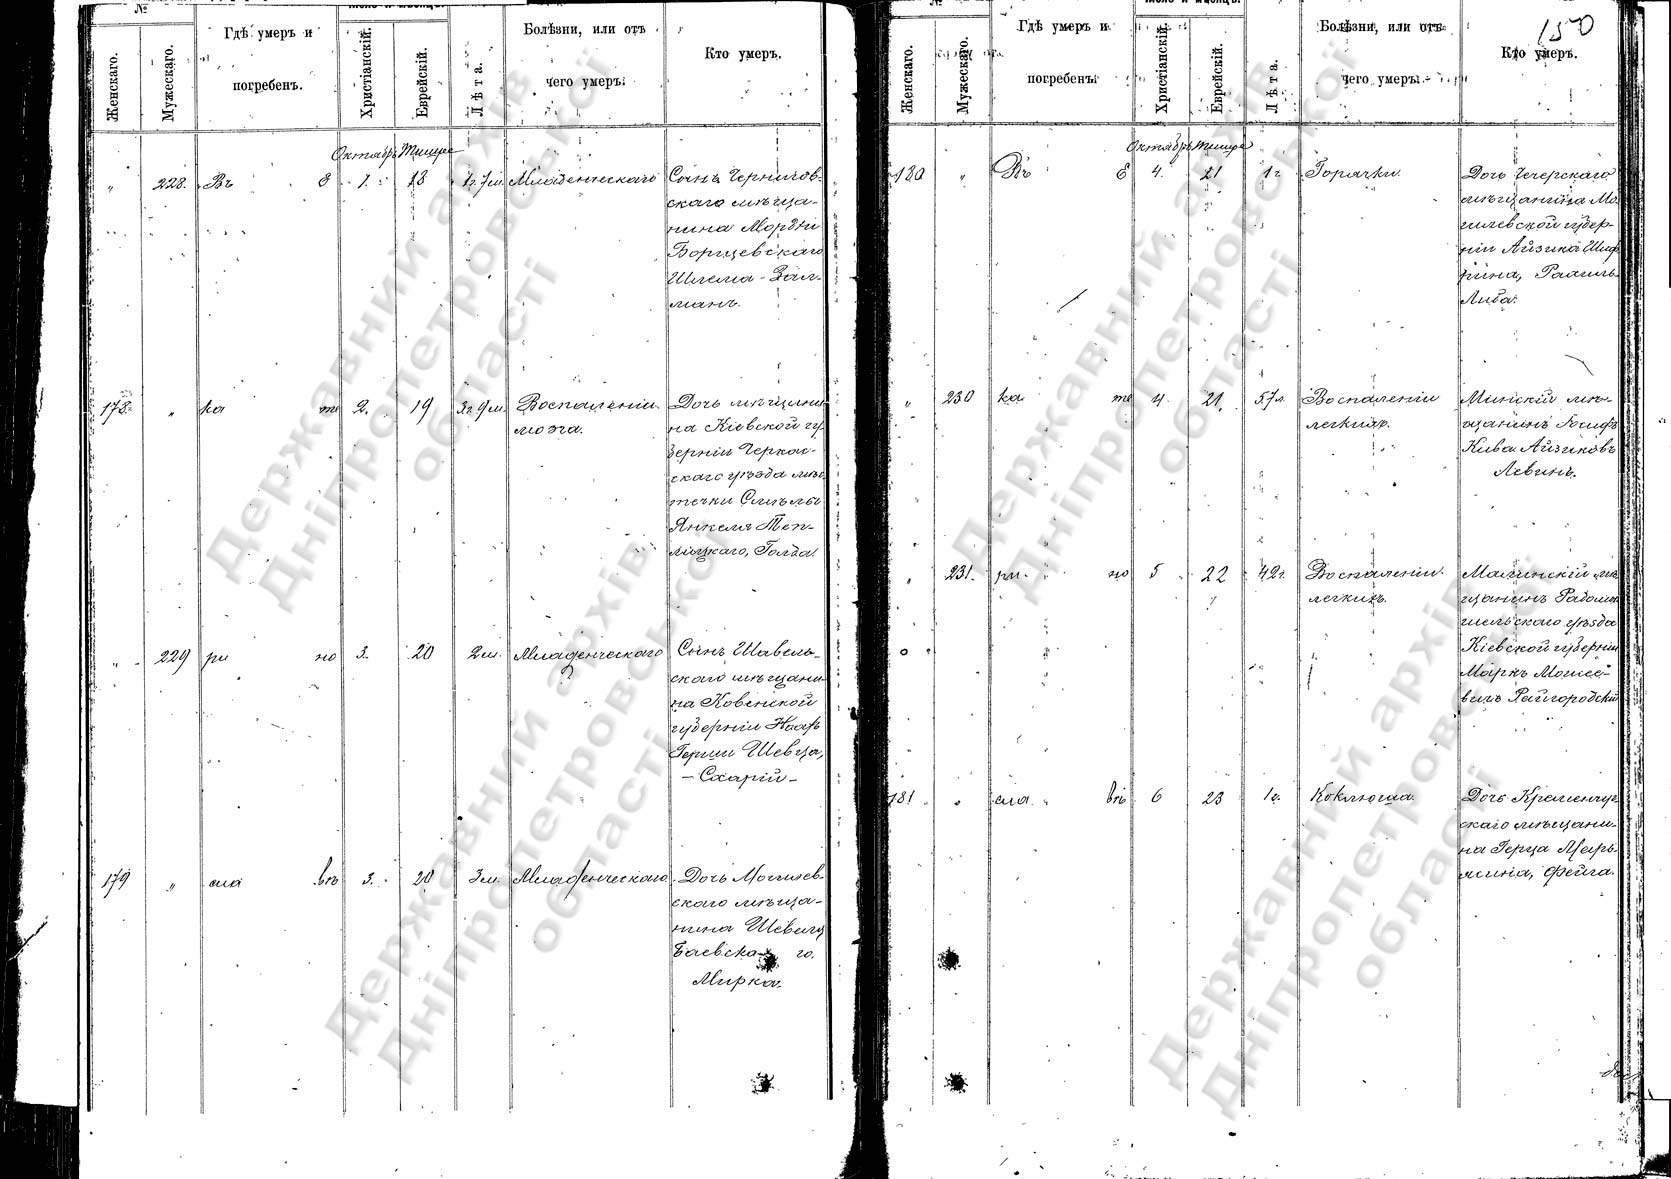 №
Женскаго.
Мужескаго.
Гдѣ умеръ и
погребенъ.
Христіанскій.
Еврейскій.
Лѣта.
Болѣзни, или отъ
чего умеръ.
Кто умеръ.
Октябрь Тишре
„ 228. Въ Е 1. 18 1г. 7м. Младенческаго
Сынъ Чернигов-
скаго мѣща-
нина Мордки
Борщевскаго
Шлема-Зал-
манъ.
178. „ ка те 2. 19 3г. 9м. Воспаленіи
мозга.
Дочь мѣщани-
на Кіевской гу-
берніи Черкас-
скаго уѣзда мѣс-
течки Смѣлы
Янкеля Теп-
лицкаго, Голда.
„ 229 ри но 3. 20 2м. Младенческаго
Сынъ Шавель-
скаго мѣщани-
на Ковенской
губерніи
Герши Шевца,
— Сахарій —
179 „ сла въ 3. 20 3м. Младенческаго
Дочь Могилев-
скаго мѣща-
нина
Баевска го.
Мирка.
150
№
Женскаго.
Мужескаго.
Гдѣ умеръ и
погребенъ.
Христіанскій.
Еврейскій.
Лѣта.
Болѣзни, или отъ
чего умеръ.
Кто умеръ.
Октябрь Тишре
180 „ Въ Е 4. 21 1г. Горячки.
Дочь Чечерскаго
мѣщанина Мо-
гилевской губер-
ніи Айзика Шиф-
рина, Рахиль-
Либа.
„ 230 ка те 4 21 57л. Воспаленіи
легкихъ.
Минскій мѣ-
щанинъ Іосифъ
Кива Айзиковъ
Левинъ.
„ 231. ри но 5 22 42г. Воспаленіи
легкихъ.
Малинскій мѣ-
щанинъ Радомы-
сльскаго уѣзда
Кіевской губерніи
Маркъ Моисее-
вичъ Райгородскій
181 „ сла въ 6 23 1г. Коклюша.
Дочь Кременчуг-
скаго мѣщани-
на Герца Меръ-
ясина, Фейга.
Державний архів
Дніпропетровської
області
Державний архів
Дніпропетровської
області
Державний архів
Дніпропетровської
області
Державний архів
Дніпропетровської
області